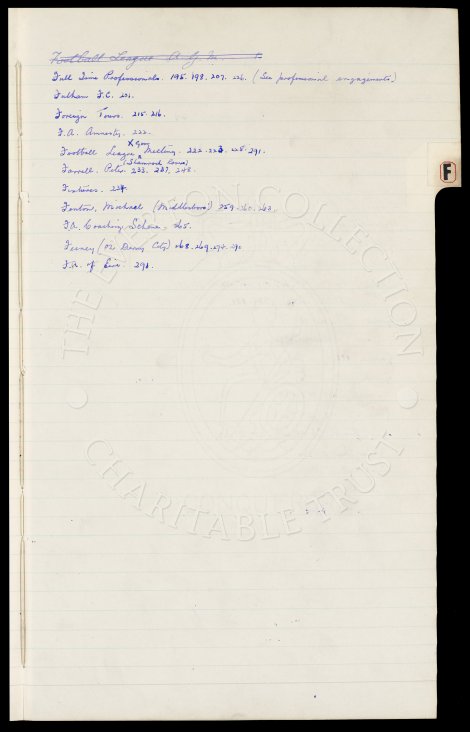 Football League A.G.M.
Full Time Professionals. 195. 198. 207. 226. (See professional engagements)
Fulham F.C. 201.
Foreign Tours. 215. 216.
F.A. Amnesty. 222.
X Gen
Football League Meeting. 222. 223. 225. 291.
(Shamrock Rovers)
Farrell. Peter. 233. 237. 248.
Fixtures. 224.
Fenton, Michael (Middlesboro') 259. 260. 263.
F.A. Coaching Scheme. 265.
Feeney (Derby City) 268. 269. 274. 290
F.A. of Eire. 291.
F
THE COLLECTION
CHARITABLE TRUST